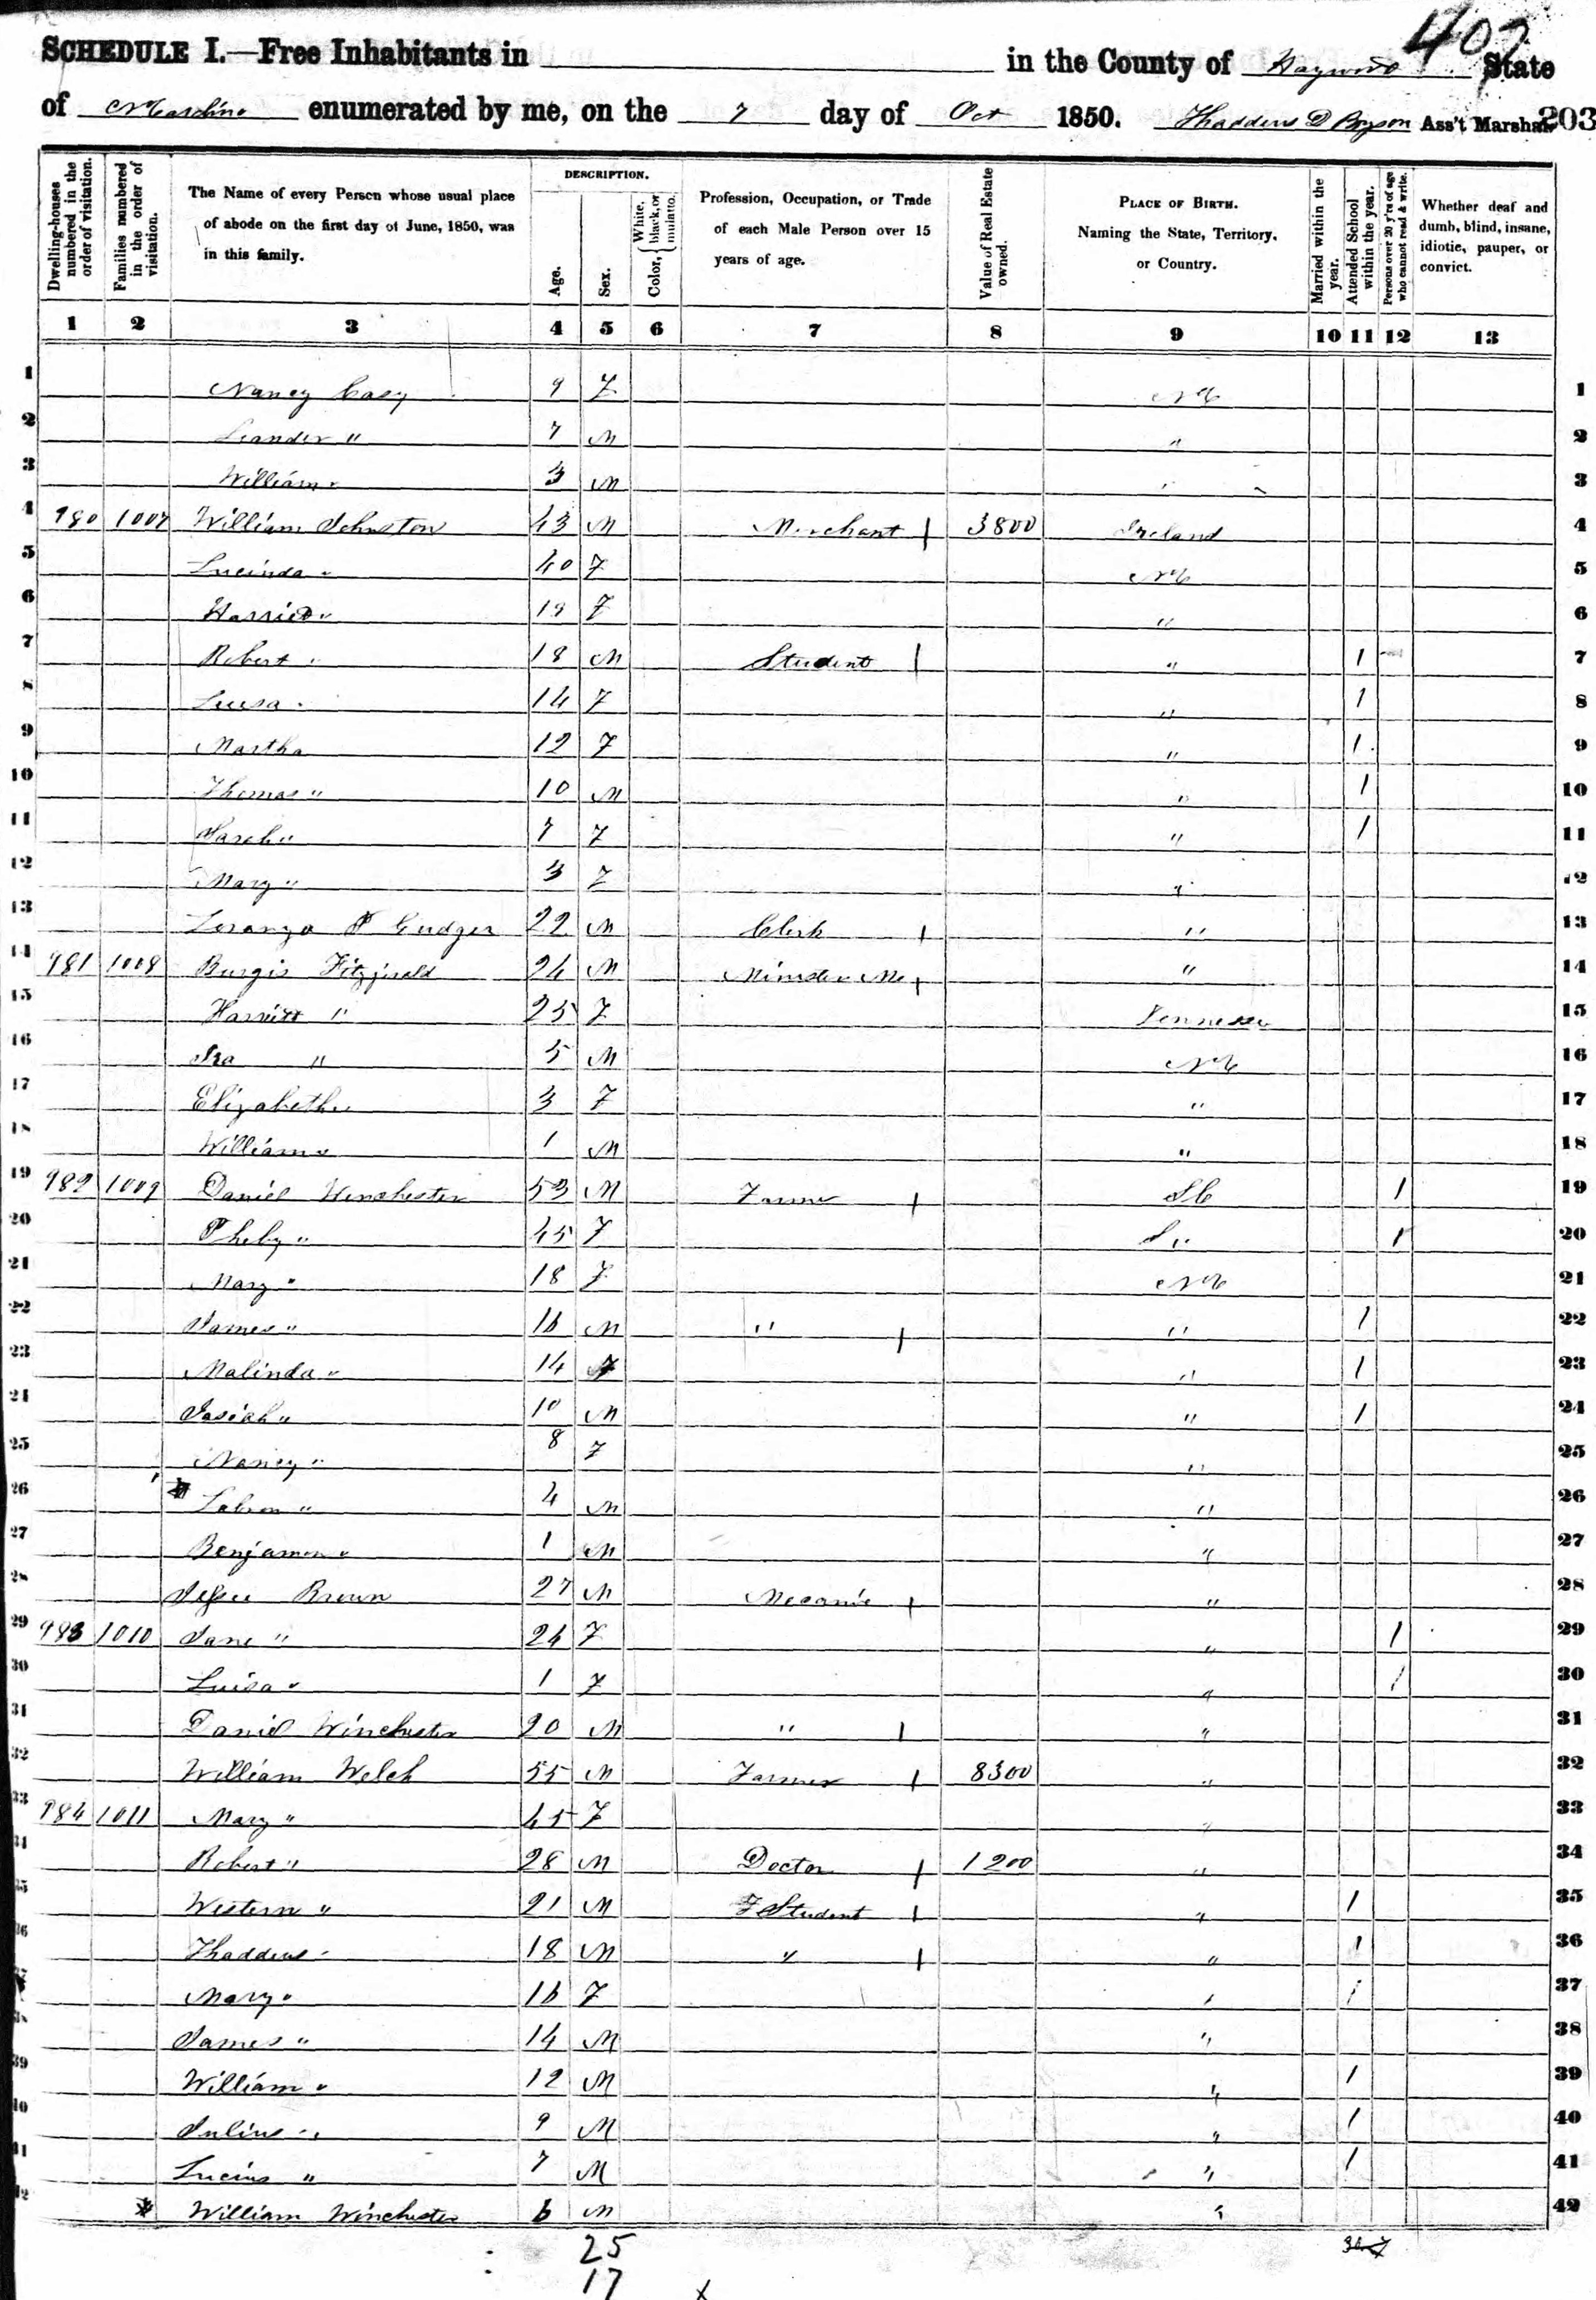 407
SCHEDULE I.—Free Inhabitants in in the County of Haywood State
of N Carolina enumerated by me, on the 7 day of Oct 1850. Thaddeus D Bryson Ass't Marshal. 203
Dwelling-houses numbered in the order of visitation.
Families numbered in the order of visitation.
The Name of every Person whose usual place of abode on the first day of June, 1850, was in this family.
DESCRIPTION.
Age.
Sex.
Color, { White, black, or mulatto.
Profession, Occupation, or Trade of each Male Person over 15 years of age.
Value of Real Estate owned.
PLACE OF BIRTH. Naming the State, Territory, or Country.
Married within the year.
Attended School within the year.
Persons over 20 y'rs of age who cannot read & write.
Whether deaf and dumb, blind, insane, idiotic, pauper, or convict.
1 2 3 4 5 6 7 8 9 10 11 12 13
1 Nancy Casy 9 F NC 1
2 Leander " 7 M " 2
3 William " 3 M 3
4 980 1007 William Johnston 43 M Merchant 3800 Ireland 4
5 Lucinda " 40 F NC 5
6 Harriet " 19 F " 6
7 Robert " 18 M Student " 1 7
8 Luisa " 14 F " 1 8
9 Martha 12 F " 1 9
10 Thomas " 10 M " 1 10
11 Sarah " 7 F " 1 11
12 Mary " 3 F " 12
13 Loranzo P Gudger 22 M Clerk " 13
14 981 1008 Burgis Fitzjerald 24 M Minister Me " 14
15 Harriet " 25 F Tennessee 15
16 Ira " 5 M NC 16
17 Elizabeth " 3 F " 17
18 William " 1 M " 18
19 982 1009 Daniel Winchester 53 M Farmer SC 1 19
20 Pheby " 45 F S " 1 20
21 Mary " 18 F NC 21
22 James " 16 M " " 1 22
23 Malinda " 14 F " 1 23
24 Josiah " 10 M " 1 24
25 Nancy " 8 F " 25
26 " 4 M " 26
27 Benjamen " 1 M " 27
28 Brown 27 M Mecanic " 28
29 983 1010 Jane " 24 F " 1 29
30 Luisa " 1 F " 1 30
31 Daniel Winchester 20 M " " 31
32 William Welch 55 M Farmer 8300 " 32
33 984 1011 Mary " 45 F " 33
34 Robert " 28 M Doctor 1200 " 34
35 Western " 21 M F Student " 1 35
36 Thaddeus " 18 M " " 1 36
37 Mary " 16 F " 1 37
38 James " 14 M " 38
39 William " 12 M " 1 39
40 Julius " 9 M " 1 40
41 Lucius " 7 M " 1 41
42 William Winchester 6 M " 42
25
17
x